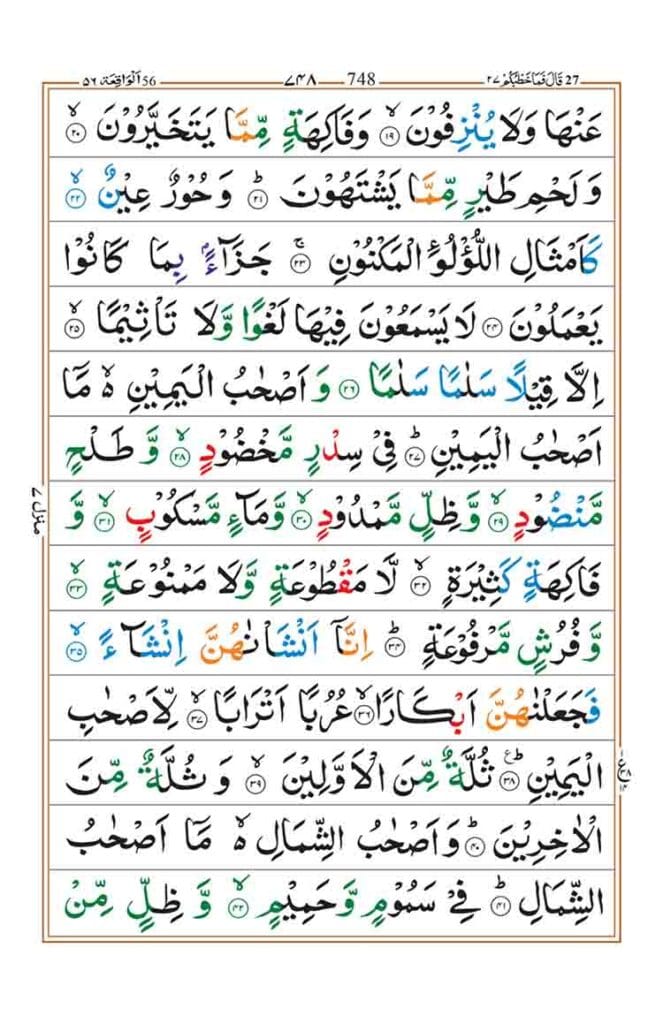 27 قَالَ فَمَا خَطْبُكُمْ ٢٧ 748 ٧٤٨ 56 اَلْوَاقِعَة ٥٦
عَنْهَا وَلَا يُنْزِفُوْنَ ۙ‏ ١٩ وَفَاكِهَةٍ مِّمَّا يَتَخَيَّرُوْنَ ۙ‏ ٢٠
وَلَحْمِ طَيْرٍ مِّمَّا يَشْتَهُوْنَ ؕ‏ ٢١ وَحُوْرٌ عِيْنٌۙ‏ ٢٢
كَاَمْثَالِ اللُّؤْلُـؤِ الْمَكْنُوْنِ‌ۚ‏ ٢٣ جَزَآءًۢ بِمَا كَانُوْا
يَعْمَلُوْنَ‏ ٢٤ لَا يَسْمَعُوْنَ فِيْهَا لَغْوًا وَّلَا تَاْثِيْمًا ۙ‏ ٢٥
اِلَّا قِيْلًا سَلٰمًا سَلٰمًا‏ ٢٦ وَاَصْحٰبُ الْيَمِيْنِ ۙ مَاۤ
اَصْحٰبُ الْيَمِيْنِؕ‏ ٢٧ فِىْ سِدْرٍ مَّخْضُوْدٍۙ‏ ٢٨ وَّطَلْحٍ
مَّنْضُوْدٍۙ‏ ٢٩ وَّظِلٍّ مَّمْدُوْدٍۙ‏ ٣٠ وَّمَآءٍ مَّسْكُوْبٍۙ‏ ٣١ وَّ
فَاكِهَةٍ كَثِيْرَةٍۙ‏ ٣٢ لَّا مَقْطُوْعَةٍ وَّلَا مَمْنُوْعَةٍۙ‏ ٣٣
وَّ فُرُشٍ مَّرْفُوْعَةٍؕ‏ ٣٤ اِنَّاۤ اَنْشَاْنٰهُنَّ اِنْشَآءًۙ‏ ٣٥
فَجَعَلْنٰهُنَّ اَبْكَارًاۙ‏ ٣٦ عُرُبًا اَتْرَابًاۙ‏ ٣٧ لِّاَصْحٰبِ
الْيَمِيْنِؕ‏ ٣٨ ثُلَّةٌ مِّنَ الْاَوَّلِيْنَۙ‏ ٣٩ وَثُلَّةٌ مِّنَ
الْاٰخِرِيْنَؕ‏ ٤٠ وَاَصْحٰبُ الشِّمَالِ ۙ مَاۤ اَصْحٰبُ
الشِّمَالِؕ‏ ٤١ فِىْ سَمُوْمٍ وَّحَمِيْمٍۙ‏ ٤٢ وَّظِلٍّ مِّنْ
منزل ٧